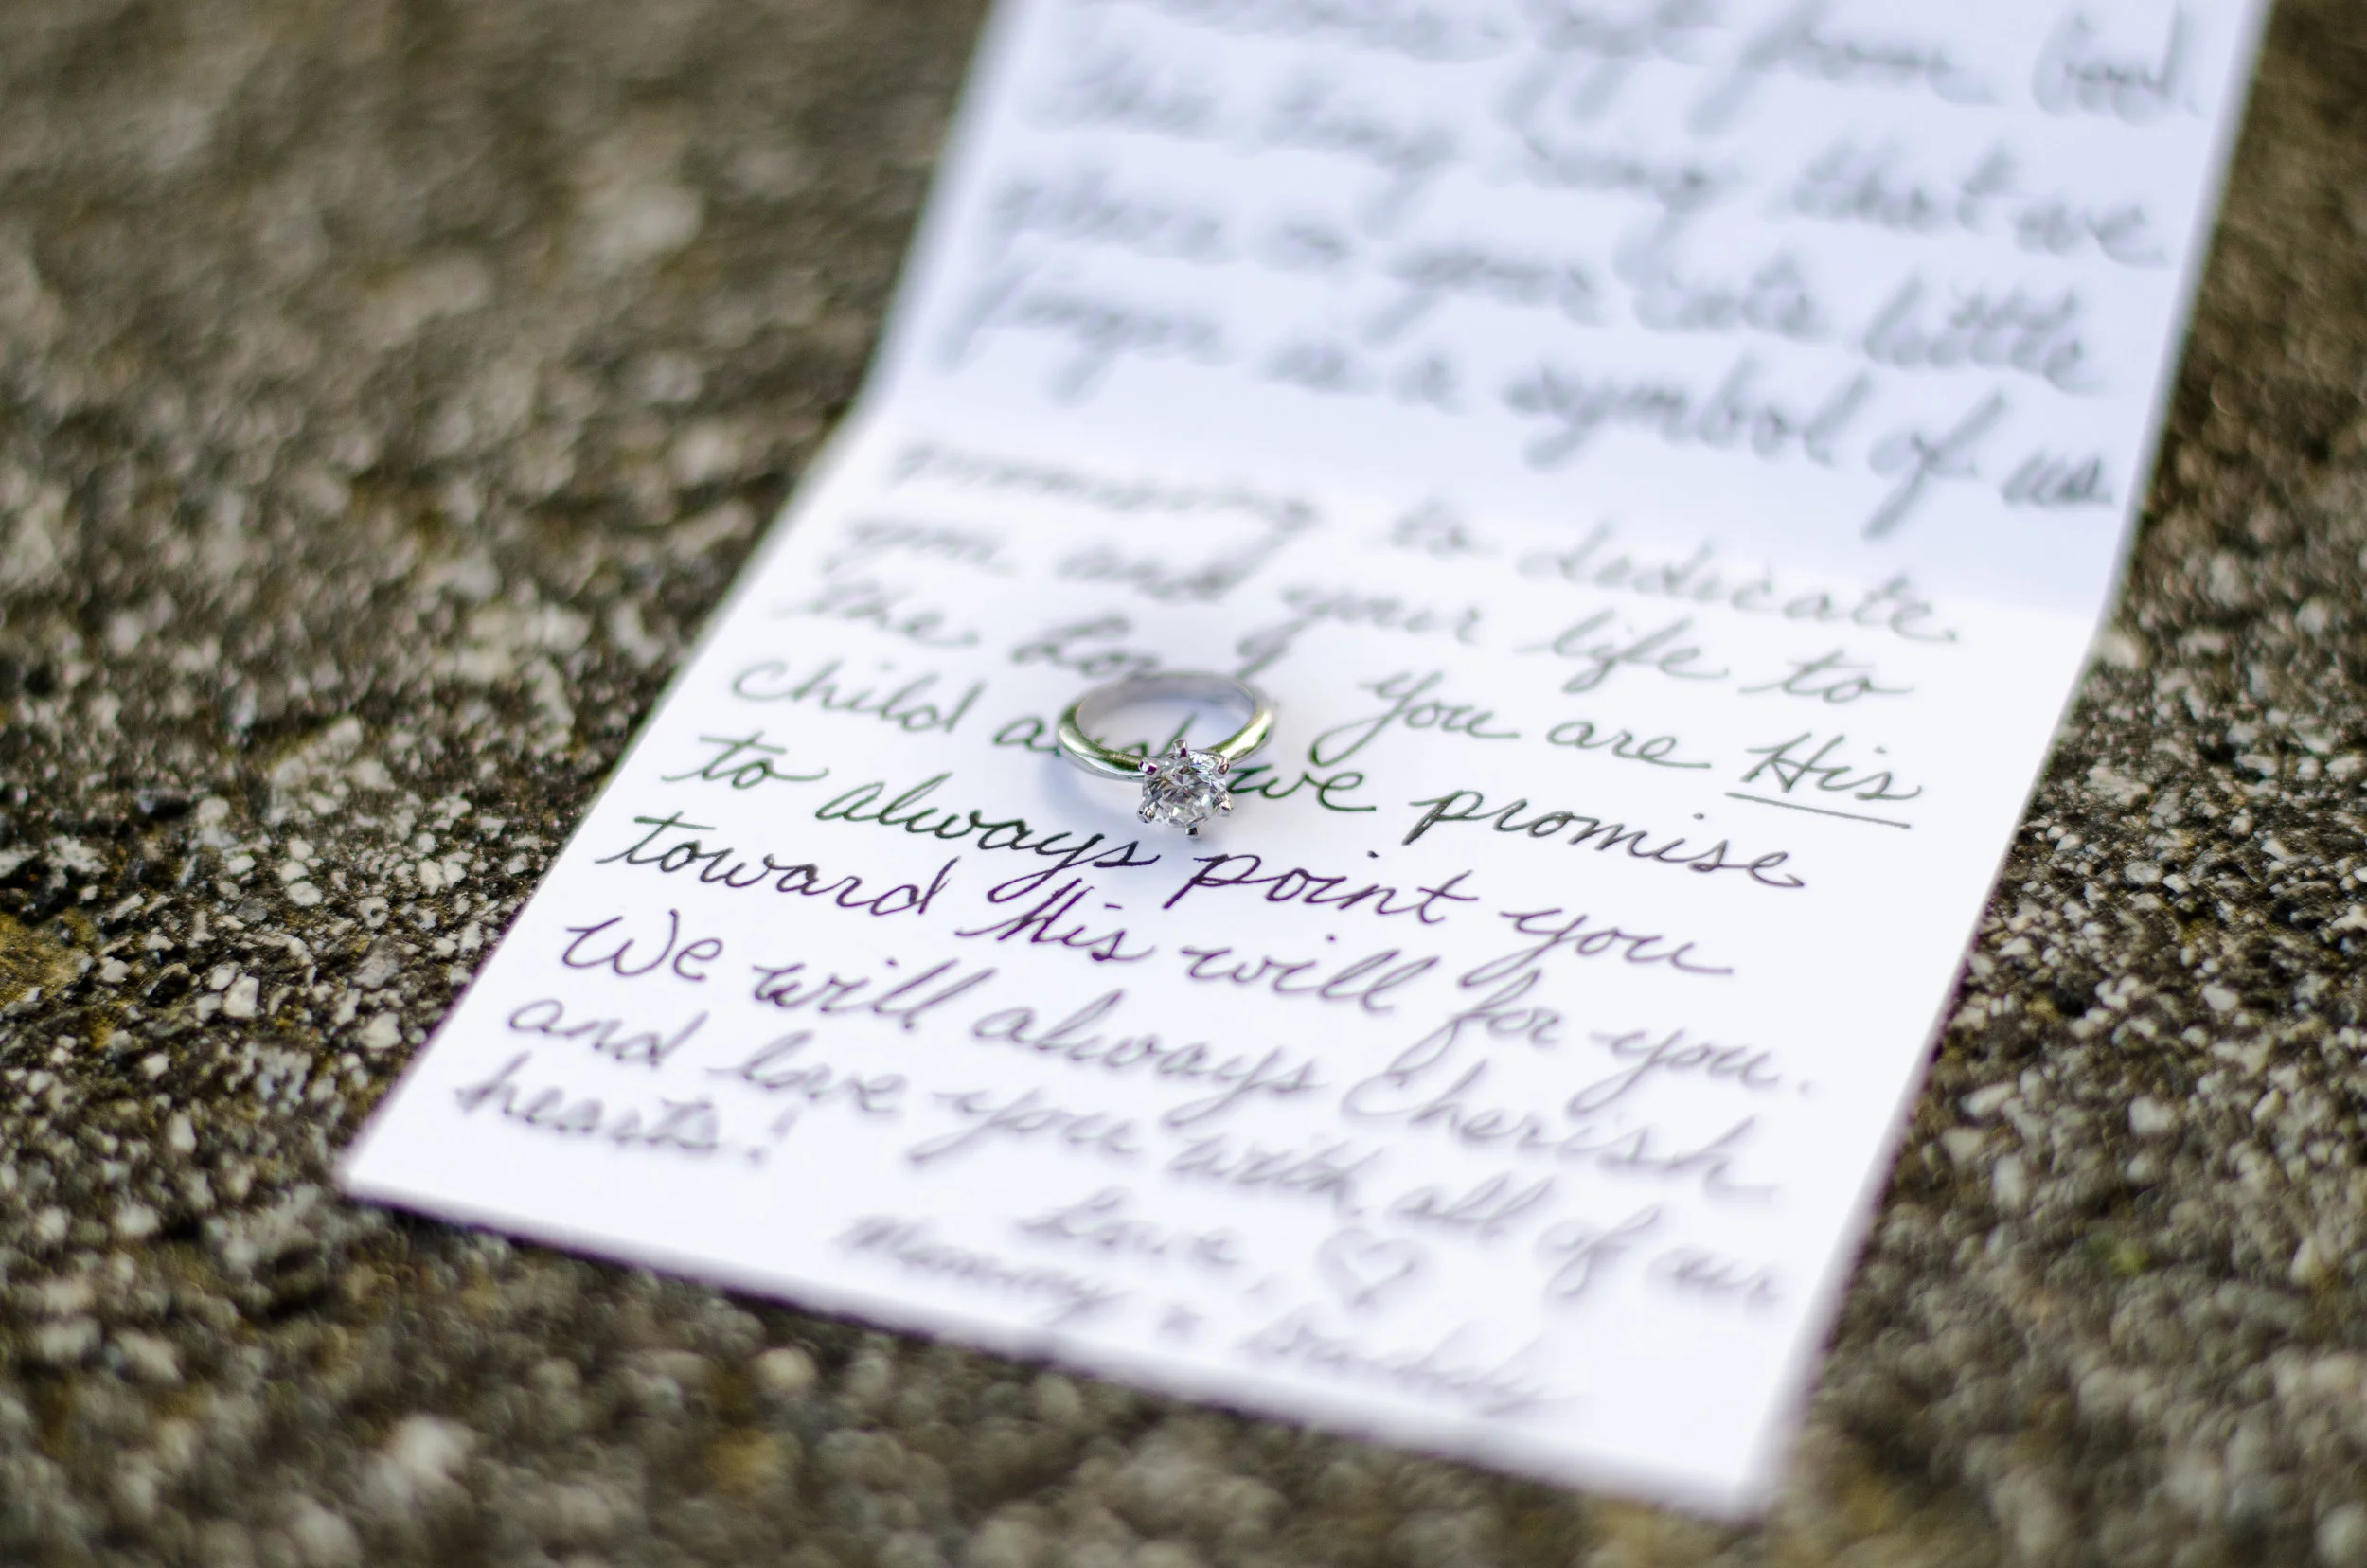 from God
this day comes that we
place on your cute little
finger as a symbol of us
promising to dedicate
you and your life to
the you are His
child and we promise
to always point you
toward His will for you.
We will always Cherish
and love you with all of our
hearts!
Love, ♡
Mommy & Daddy